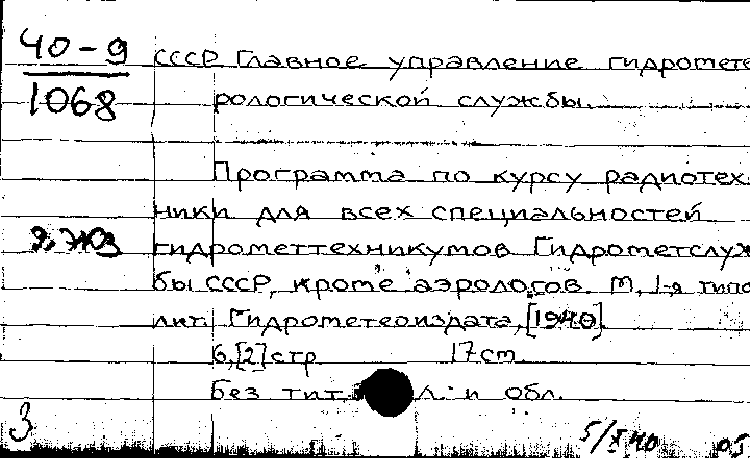 40-9
1068
СССР Главное управление гидромете
рологической службы.
Программа по курсу радиотех
ники для всех специальностей
гидрометтехникумов Гидрометслуж
бы СССР, кроме аэрологов. М, 1-я типо
лит. Гидрометеоиздата, [1940].
6,[2] стр 17 см
Без тит. л. и обл.
3
5/X 40